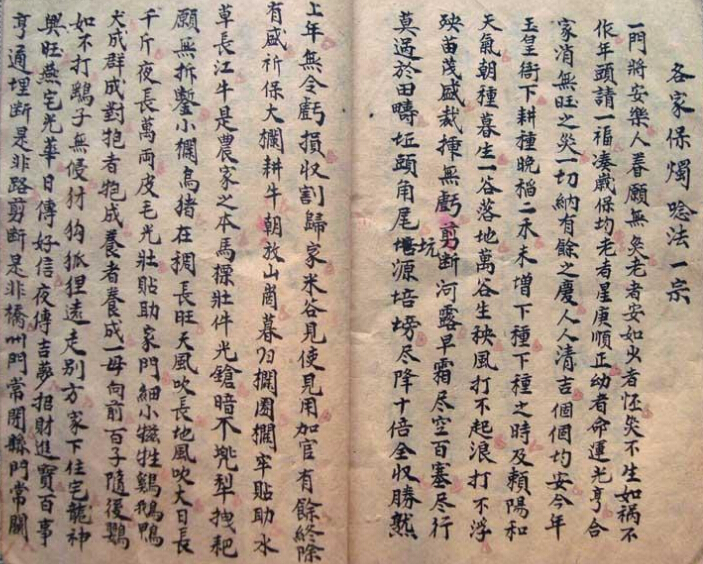 各家保燭唸法一宗
一門將安樂人眷願無灾老者安如少者怪灾不生如禍不
作年頭請一福凑歲保均老者星庚順正幼者命運光亨合
家消無旺之災一切納有餘之慶人人清吉個個均安今年
玉皇衙下耕種晚稲二禾未增下種下種之時及賴陽和
天氣朝種暮生一谷落地萬谷生秧風打不起浪打不浮
秧苗茂盛栽揷無虧剪断河露早霜尽空百塞尽行
莫過於田疇坵頭角尾坑源培塝尽降十倍全収勝熟
上年無令虧損収割歸家米谷見使見用加官有餘終除
有盛祈保大欄耕牛朝放山崗暮归欄圂欄牢貼助水
草長江牛是農家之本馬標壯件光鎗暗不兇犁拽耙
願無拆鏨小欄烏猪在稠長旺天風吹長地風吹大日長
千斤夜長萬両皮毛光壯貼助家門細小犠牲鷄鵝鴨
犬成群成對抱者抱成養者養成一母向前百子隨後鷂
如不打鷂子無侵犲狗狐狸遠走別方家下住宅龍神
興旺燕宅光華日傳好信夜傳吉夢招財進寳百事
亨通埋断是非路剪断是非橋州門常閉縣門常關